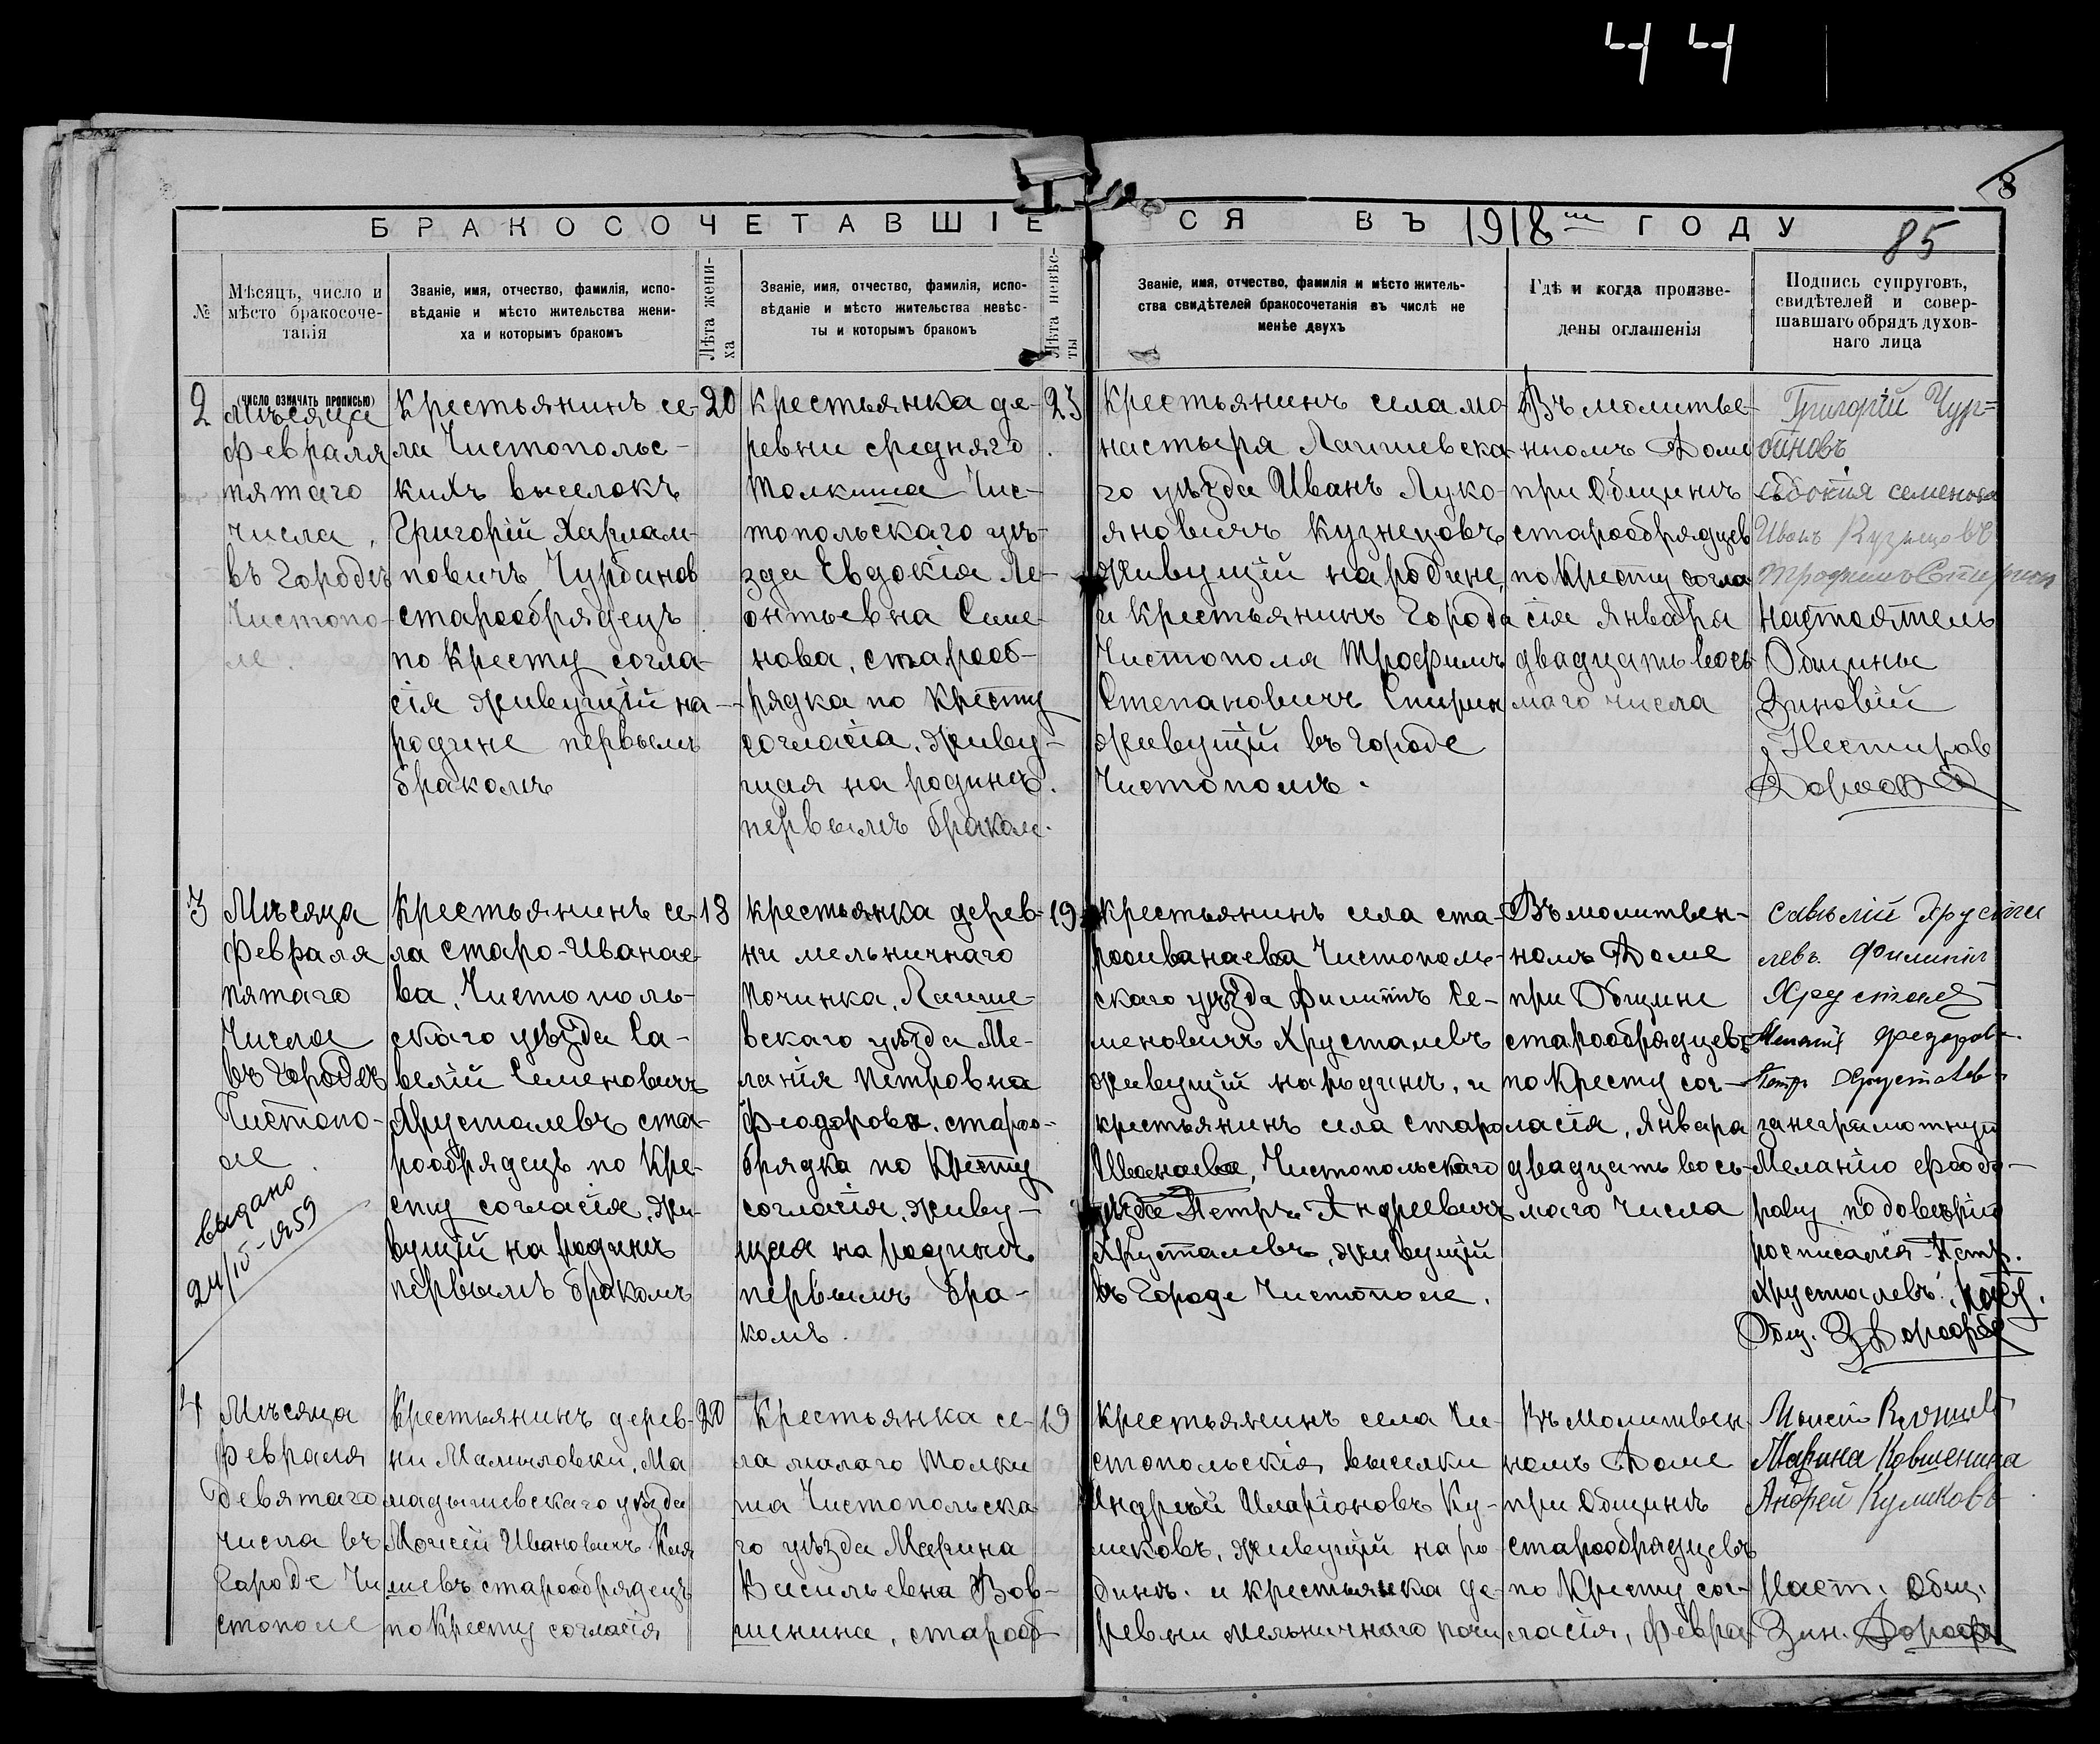 44
8
БРАКОСОЧЕТАВШІЕСЯ ВЪ 1918 ГОДУ
85
№
Мѣсяцъ, число и
мѣсто бракосоче-
танія
(число означать прописью)
Званіе, имя, отчество, фамилія, испо-
вѣданіе и мѣсто жительства жени-
ха и которымъ бракомъ
Лѣта жени-
ха
Званіе, имя, отчество, фамилія, испо-
вѣданіе и мѣсто жительства невѣс-
ты и которымъ бракомъ
Лѣта невѣс-
ты
Званіе, имя, отчество, фамилія и мѣсто житель-
ства свидѣтелей бракосочетанія въ числѣ не
менѣе двухъ
Гдѣ и когда произве-
дены оглашенія
Подпись супруговъ,
свидѣтелей и совер-
шавшаго обрядъ духов-
наго лица
2
Мѣсяца
Февраля
пятаго
числа,
въ Городѣ
Чистопо-
ле.
Крестьянинъ се-
ла Чистопольс-
кихъ выселокъ
Григорій Харлам-
повичъ Чурбанов
старообрядецъ
по Кресту согла-
сія живущій на
родине первымъ
бракомъ
20
Крестьянка де-
ревни средняго
Толкиша Чис-
топольскаго уѣ-
зда Евдокія Ле-
онтьевна Семе-
нова, старооб-
рядка по Кресту
согласія, живу-
щая на родинѣ.
первымъ браком.
23
Крестьянинъ села мо-
настыря Лаишевска-
го уѣзда Иванъ Луко-
яновичъ Кузнецовъ
живущій на родине,
и крестьянинъ Города
Чистополя Трофимъ
Степановичъ Спирин
живущій въ городе
Чистополѣ.
Въ молитве-
нномъ Доме
при Общинѣ
старообрядцев
по Кресту согла
сія Января
двадцать вось
маго числа
Григорій Чур=
бановъ
Евдокія семенова
Иванъ Кузнецовъ
Трофимъ Спирин
настоятель
Общины
Зиновій
Нестиров
3
Мѣсяца
Февраля
пятаго
Числа
въ Городѣ
Чистопо-
ле.
выдано
24/IV-1959
Крестьянинъ се-
ла старо-Иванае-
ва, Чистополь-
скаго уѣзда Са-
велій Семеновичъ
Хрусталевъ ста-
рообрядецъ по Кре-
сту согласія, жи-
вущій на родинѣ
первымъ бракомъ
18
крестьянка дерев-
ни мельничнаго
Починка, Лаише-
вскаго уѣзда Ме-
ланія Петровна
Феодорова, староо-
брядка по Кресту
согласія, живу-
щая на родинѣ
первымъ бра-
комъ.
19
крестьянинъ села ста-
роиванаева Чистополь-
скаго уѣзда Филиппъ Се-
меновичъ Хрусталевъ
живущій на родинѣ, и
крестьянинъ села старо
Иванаева, Чистопольскаго
уѣзда Петръ Андреевичъ
Хрусталевъ, живущій
въ Городе Чистополе.
Въ молитвен-
номъ Доме
при Общине
старообрядцевъ
по Кресту сог-
ласія, Января
двадцать вось-
маго числа
савелій Хруста
левъ Филиппъ
Хрусталев
Меланія Федоров
Петръ Хрусталев
за неграмотную
Меланію Феодо-
рову по доверію
росписался Петр.
Хрусталевъ. Наст.
Общ. З Дорофеев
4
Мѣсяца
Февраля
девятаго
числа въ
Городе Чи
стополе
Крестьянинъ дерев-
ни Малиловки, Ма
мадышевскаго уѣзда
Мочсій Ивановичъ
старообрядецъ
по Кресту согласія
20
Крестьянка се-
ла малаго Толки
ша Чистопольска
го уѣзда Марина
Васильевна Вов-
шенина, старооб-
19
Крестьянинъ села Чи-
стопольскія выселки
Андрей Иларіоновъ Ку-
ликовъ, живущій на ро
динѣ. и крестьянка де-
ревни Мельничнаго почи
Въ молитвен-
номъ Доме
при Общинѣ
старообрядцевъ
по Кресту сог-
ласія, Февра-
Марина Ковшенина
Андрей Куликовъ
Наст. Общ.
Зин. Дороф